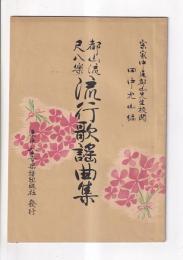 宗家中尾都山先生校閲
田中允山編
都山流
尺八楽
流行歌謡曲集
発行